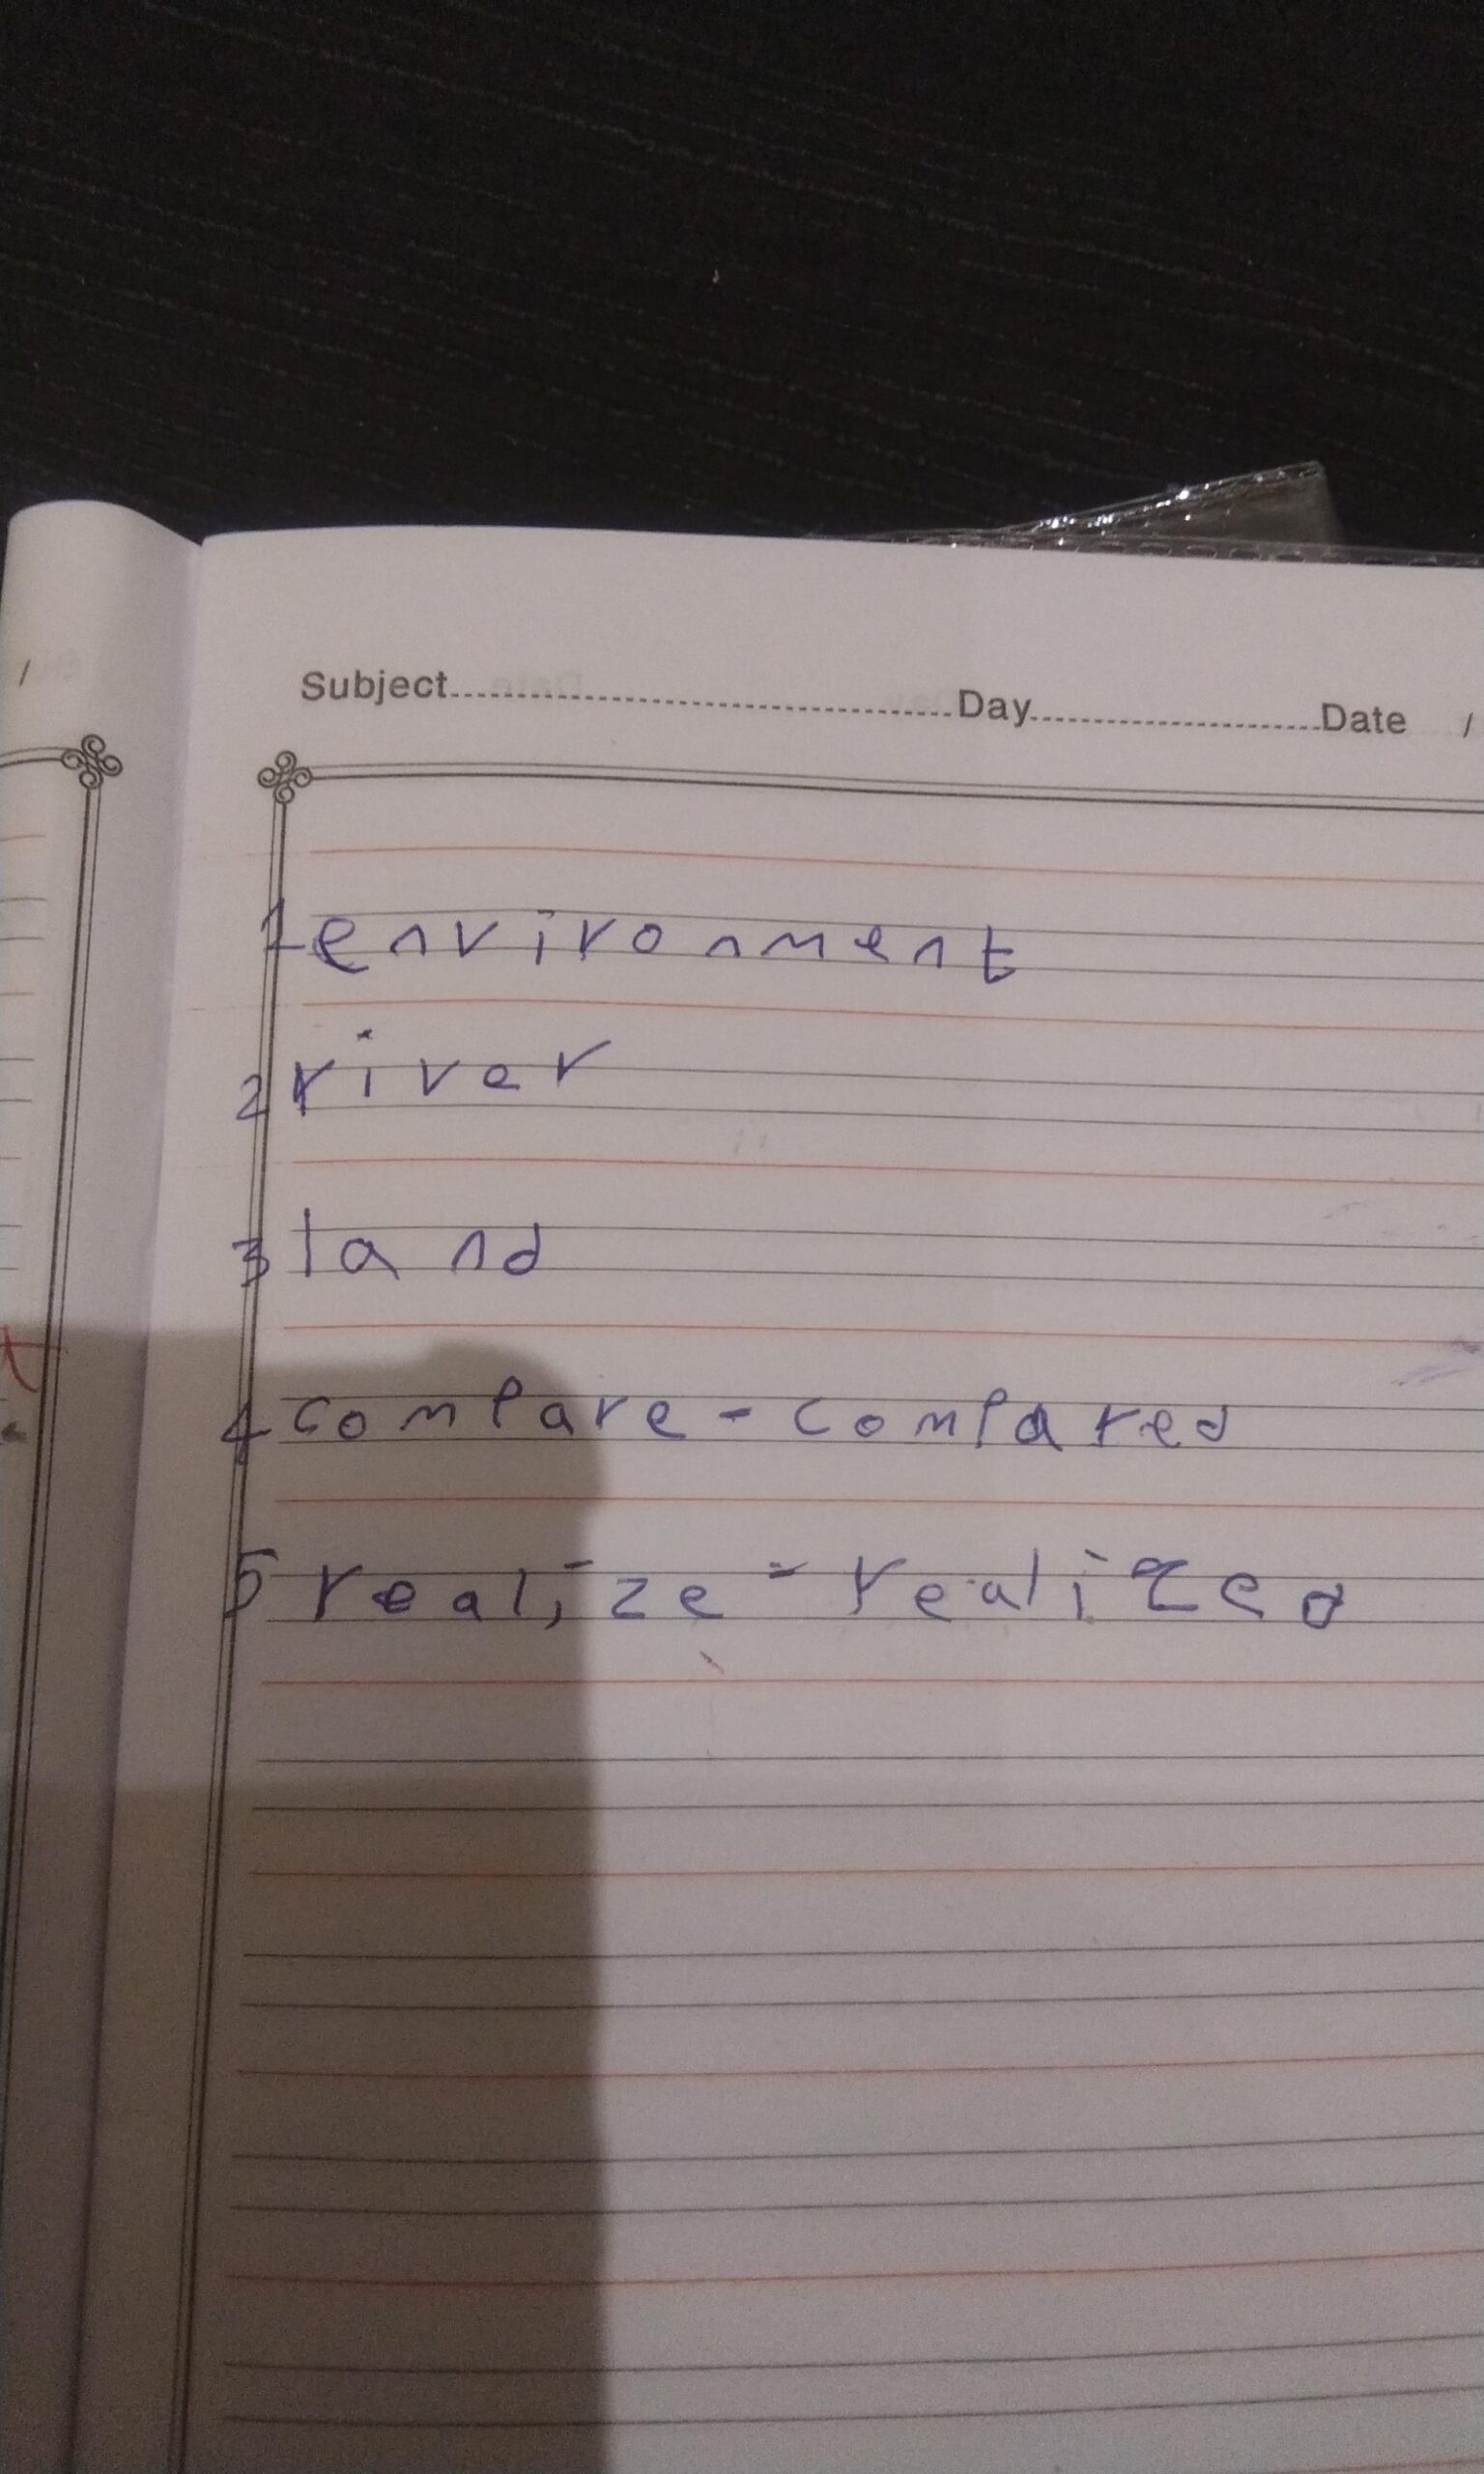 Subject Day Date /
1 environment
2 river
3 land
4 compare - compared
5 realize - realized